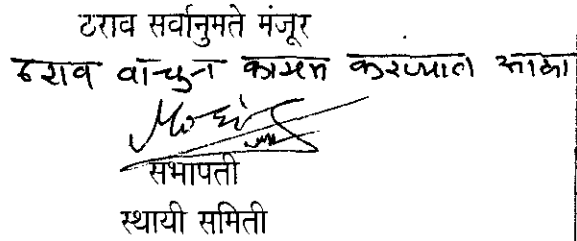 ठराव सर्वानुमते मंजूर
ठराव वाचुन कायम करण्यात आला
सभापती
स्थायी समिती